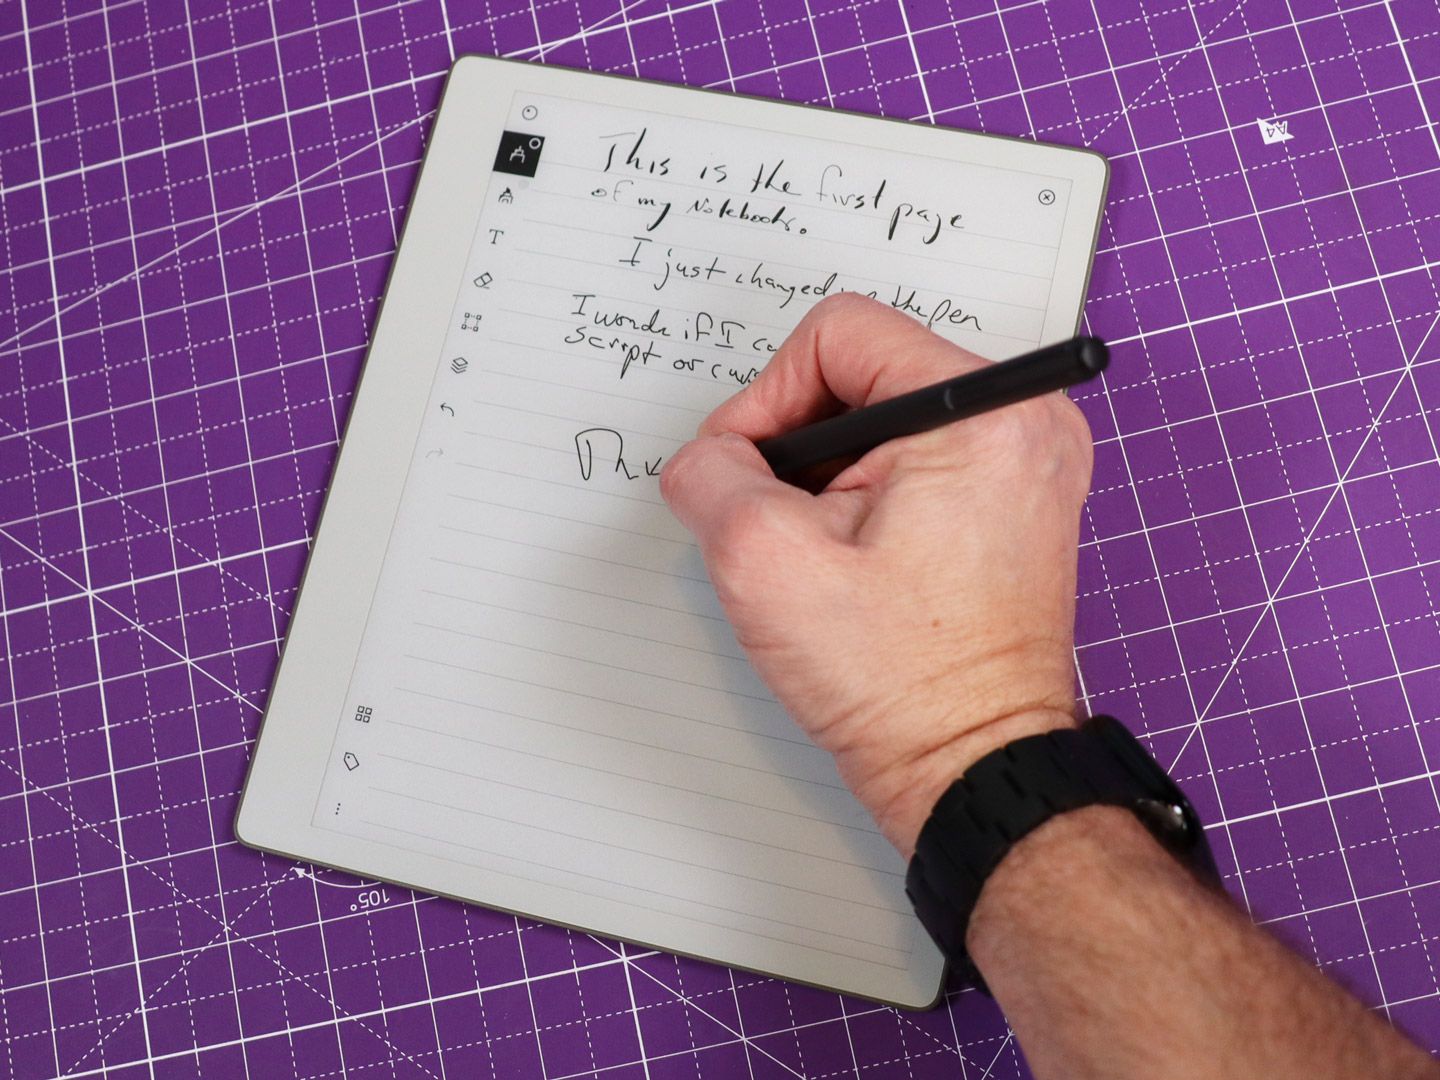 This is the first page
of my Notebook.
I just changed up the pen
I wonde if I ca
script or curs
Thi
T
A4
105°